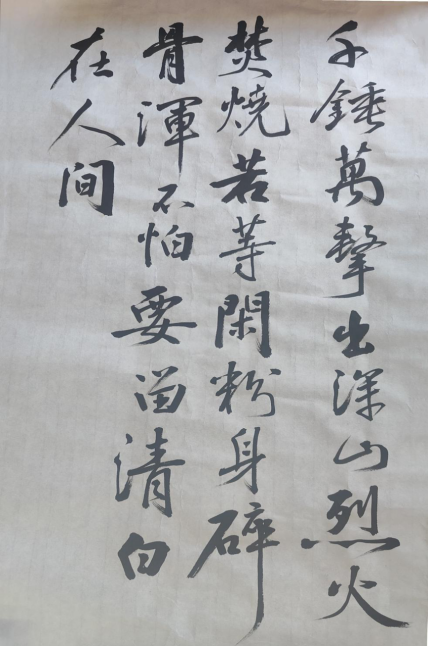 千錘萬擊出深山烈火
焚燒若等閑粉身碎
骨渾不怕要留清白
在人间